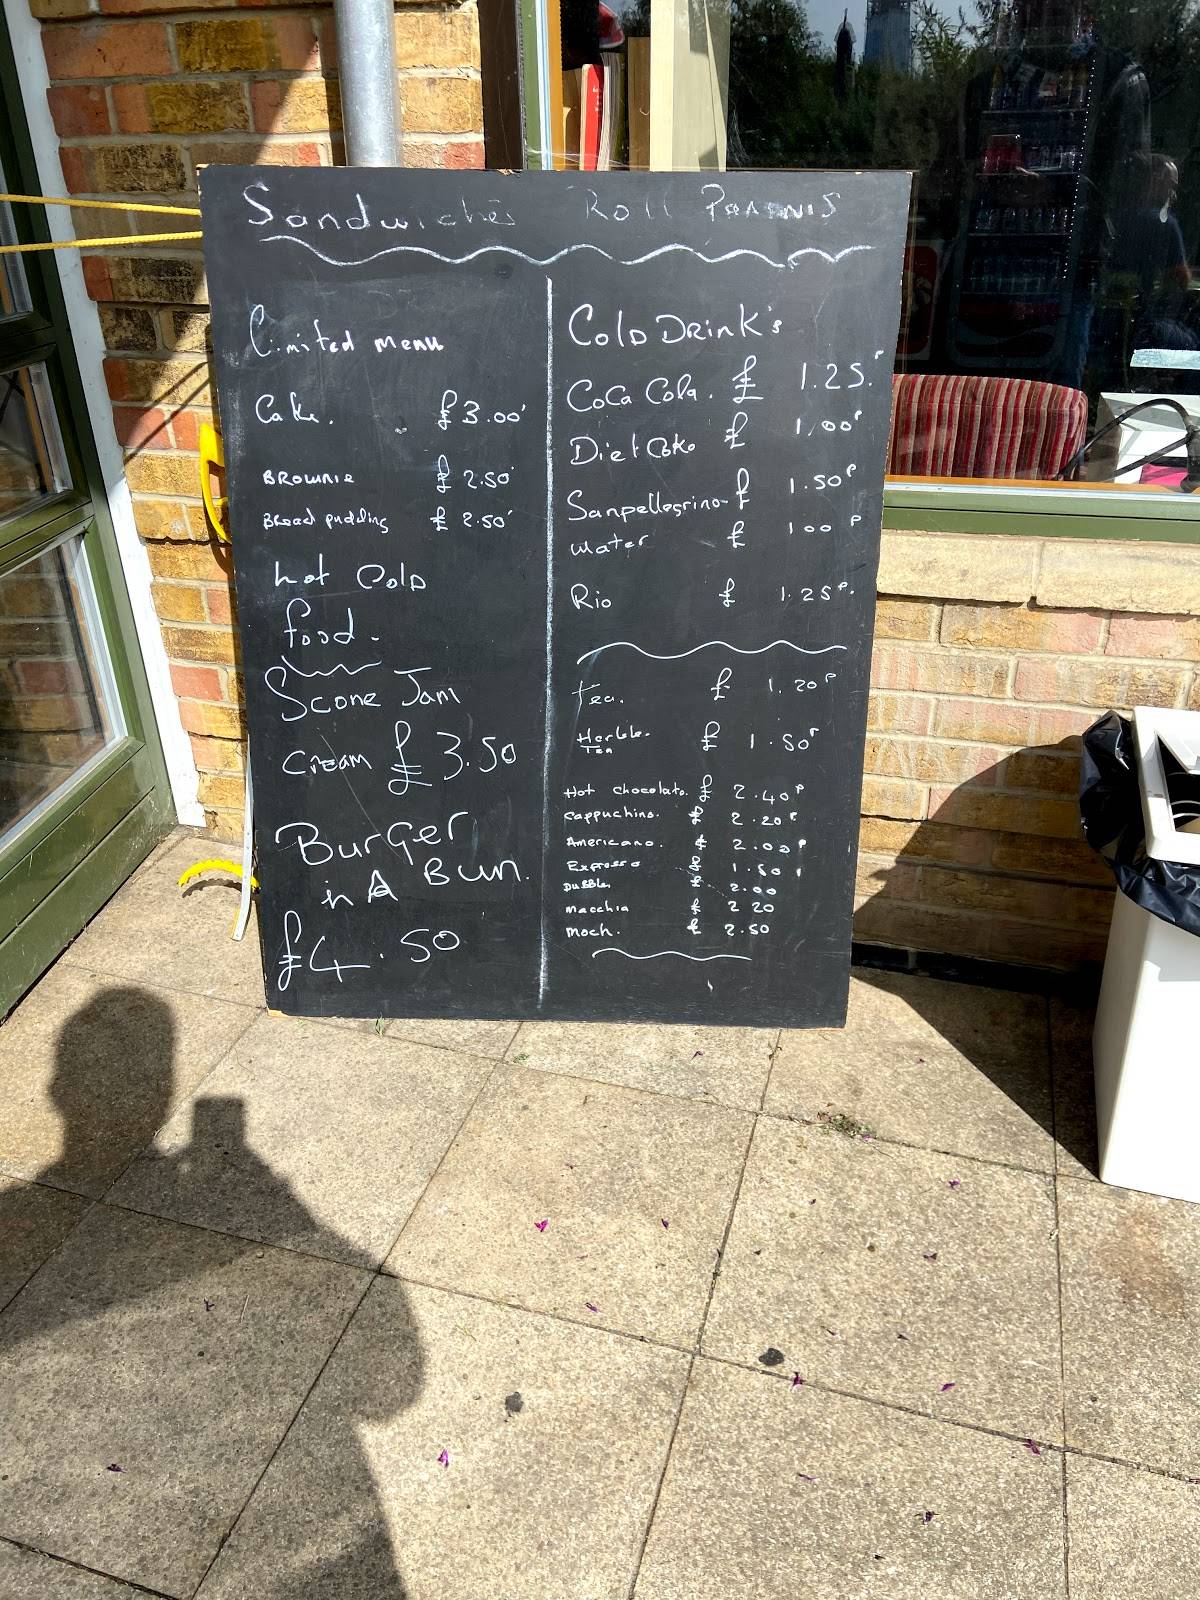 Sandwiches Roll Paninis
Limited menu
Cake. £3.00
BROWNIE £2.50
Bread pudding £2.50
hot Cold
food.
Scone Jam
cream £3.50
Burger
in A Bun.
£4.50
Cold Drink's
Coca Cola. £ 1.25.P
Diet Coke £ 1.00P
Sanpellegrino £ 1.50P
water £ 1 00 P
Rio £ 1.25P.
Tea. £ 1.20P
Herble.
Tea £ 1.50P
Hot chocolate. £ 2.40P
Cappuchino. £ 2.20P
Americano. £ 2.00P
Expresso £ 1.50
Dubble. £ 2.00
macchia £ 2 20
moch. £ 2.50